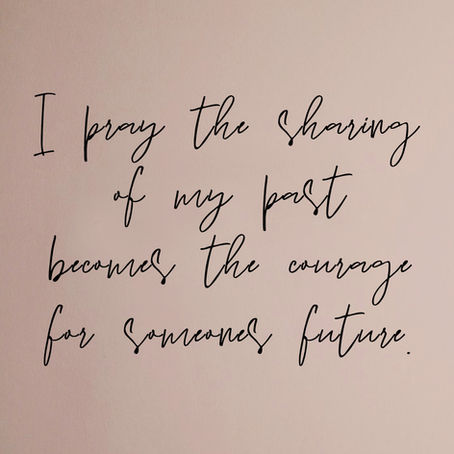 I pray the sharing
of my past
becomes the courage
for someones future.